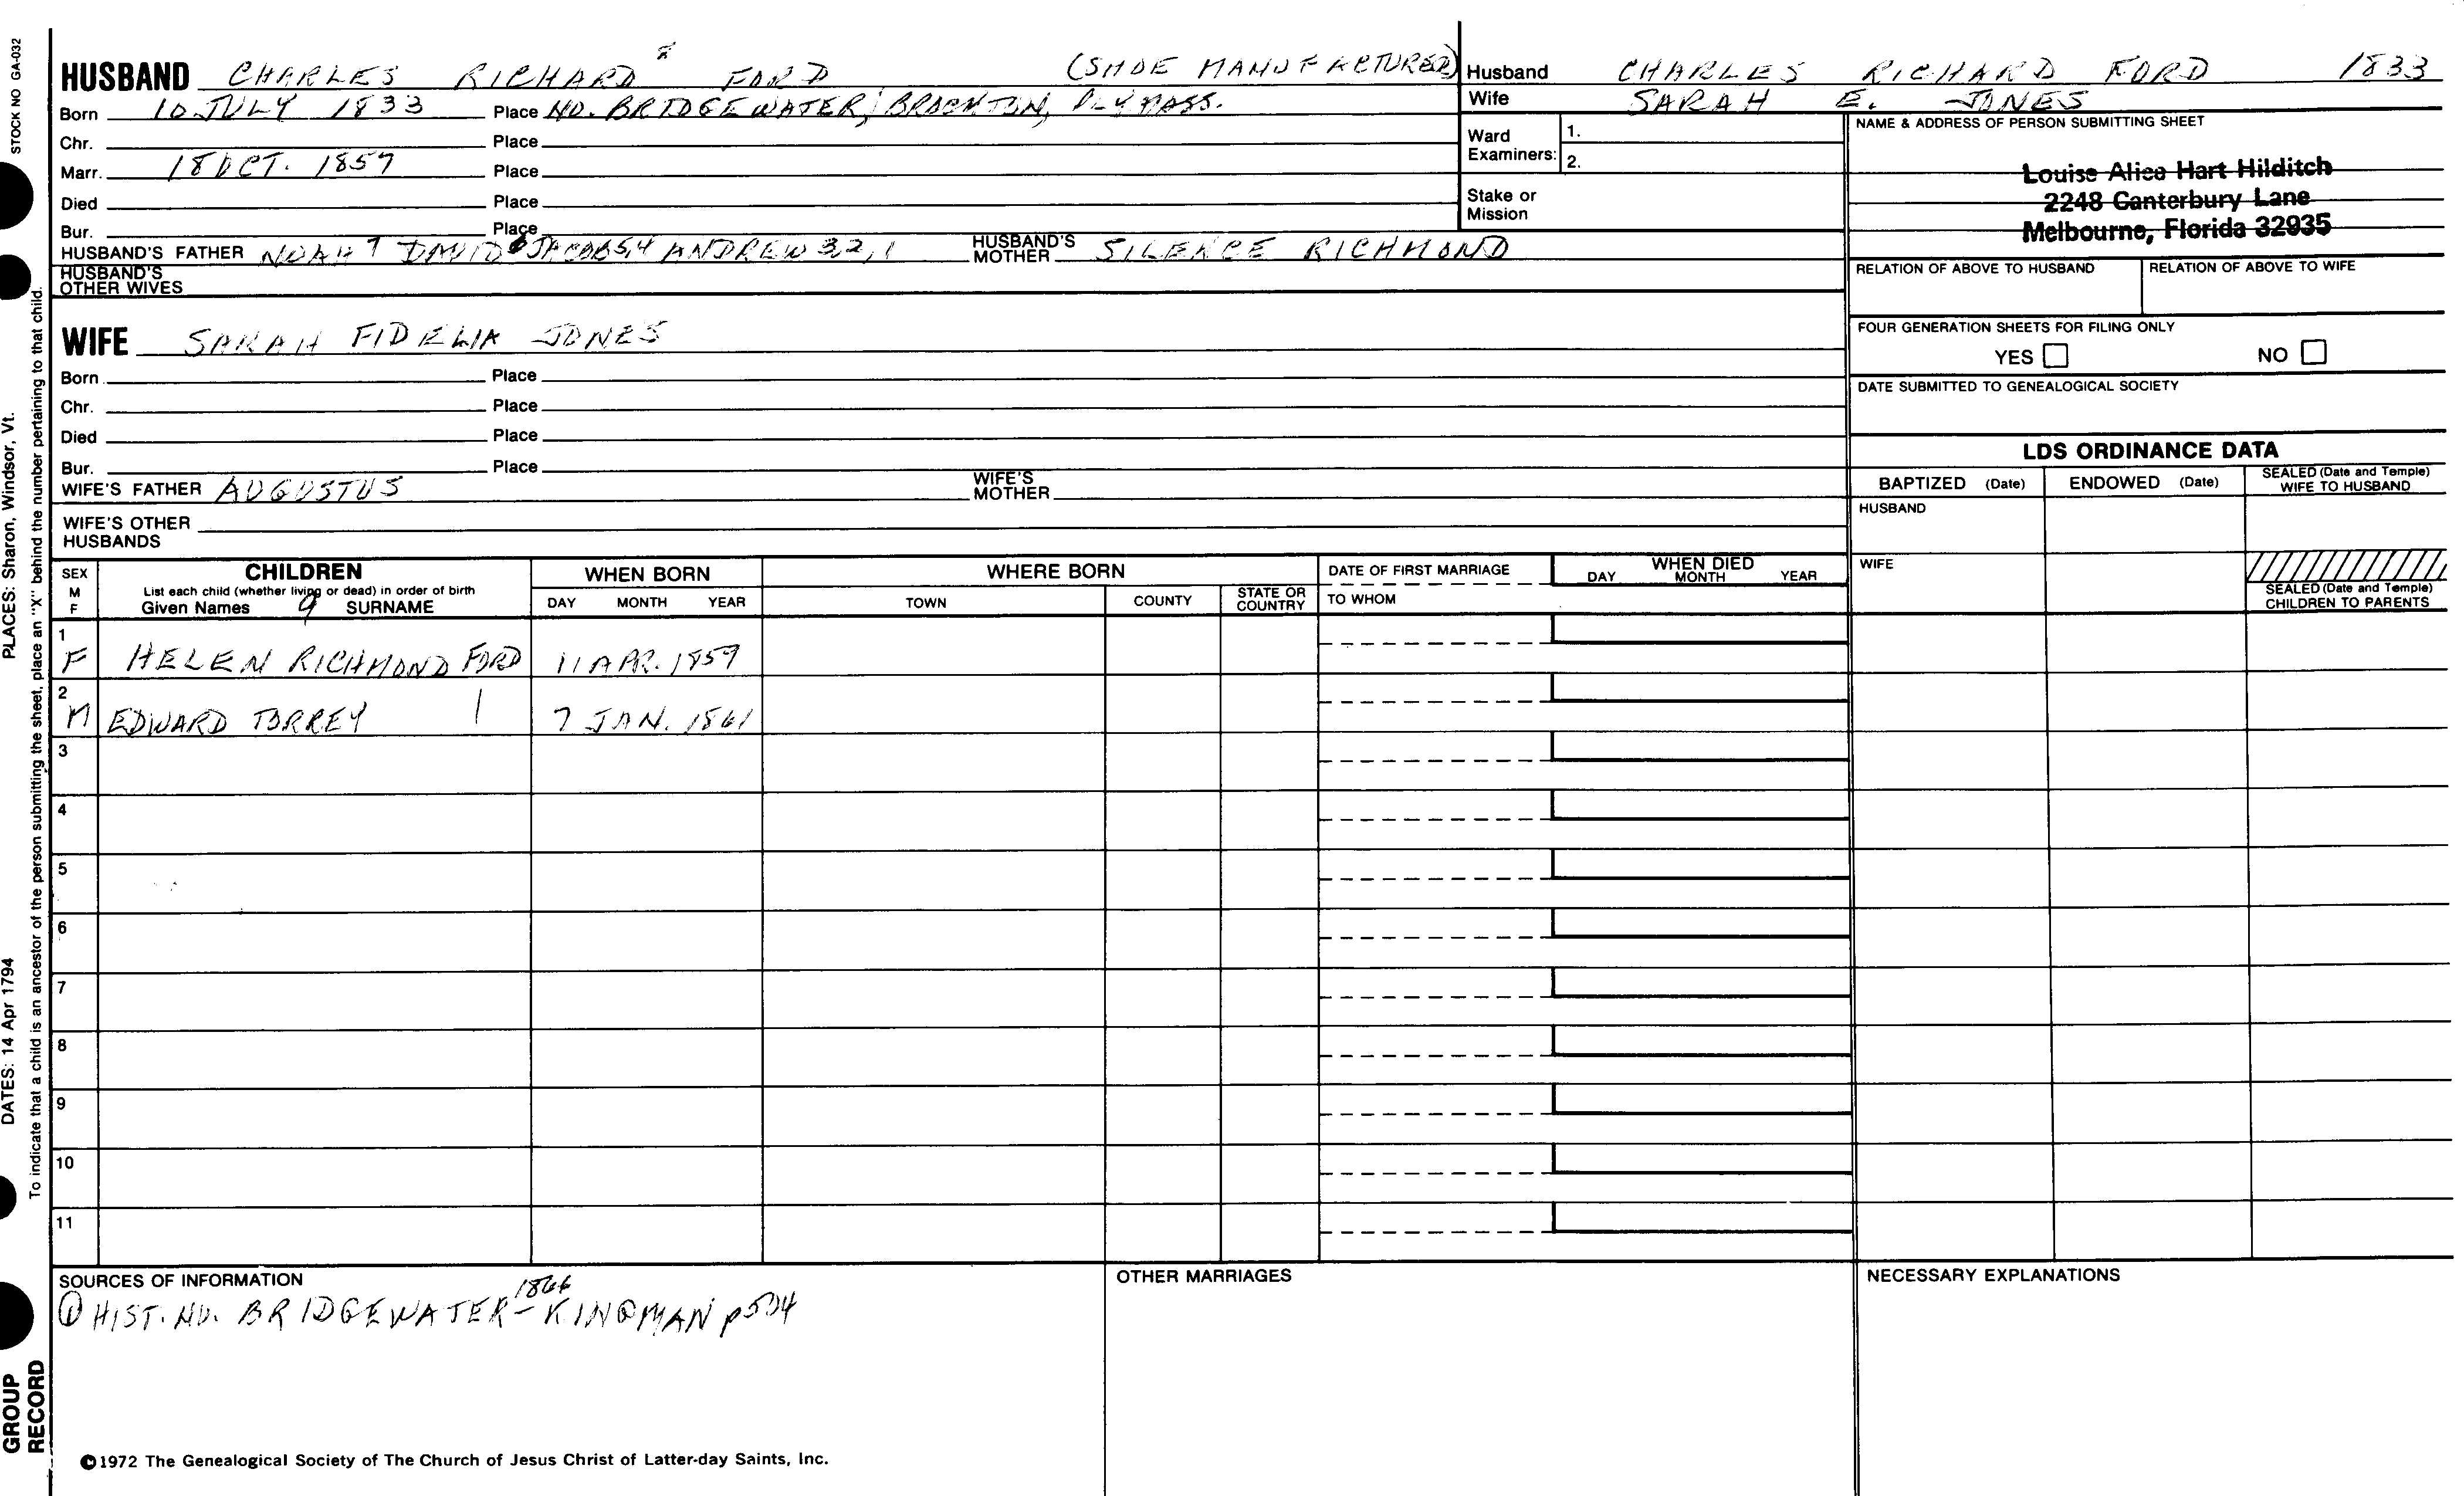 STOCK NO GA-032
PLACES: Sharon, Windsor, Vt.
DATES: 14 Apr 1794
To indicate that a child is an ancestor of the person submitting the sheet, place an "X" behind the number pertaining to that child.
GROUP
RECORD
HUSBAND CHARLES RICHARD 8 FORD (SHOE MANUFACTURER)
Born 10 JULY 1833 Place NO. BRIDGEWATER, BROCKTON, PLY MASS.
Chr. Place
Marr. 18 OCT. 1857 Place
Died Place
Bur. Place
HUSBAND'S FATHER NOAH 7 DAVID 6 JACOB 5,4 ANDREW 3,2,1 HUSBAND'S MOTHER SILENCE RICHMOND
HUSBAND'S
OTHER WIVES
Husband CHARLES RICHARD FORD 1833
Wife SARAH E. JONES
Ward
Examiners: 1.
2.
Stake or
Mission
NAME & ADDRESS OF PERSON SUBMITTING SHEET
Louise Alice Hart Hilditch
2248 Canterbury Lane
Melbourne, Florida 32935
RELATION OF ABOVE TO HUSBAND RELATION OF ABOVE TO WIFE
FOUR GENERATION SHEETS FOR FILING ONLY
YES NO
DATE SUBMITTED TO GENEALOGICAL SOCIETY
WIFE SARAH FIDELIA JONES
Born Place
Chr. Place
Died Place
Bur. Place
WIFE'S FATHER AUGUSTUS WIFE'S MOTHER
WIFE'S OTHER
HUSBANDS
LDS ORDINANCE DATA
BAPTIZED (Date) ENDOWED (Date) SEALED (Date and Temple) WIFE TO HUSBAND
HUSBAND
WIFE
SEALED (Date and Temple)
CHILDREN TO PARENTS
SEX
M
F
CHILDREN
List each child (whether living or dead) in order of birth
Given Names 9 SURNAME
WHEN BORN
DAY MONTH YEAR
WHERE BORN
TOWN COUNTY STATE OR COUNTRY
DATE OF FIRST MARRIAGE
TO WHOM
WHEN DIED
DAY MONTH YEAR
1
F HELEN RICHMOND FORD 11 APR. 1859
2
M EDWARD TORREY 7 JAN. 1861
3
4
5
6
7
8
9
10
11
SOURCES OF INFORMATION
1866
① HIST. NO. BRIDGEWATER - KINGMAN p504
OTHER MARRIAGES
NECESSARY EXPLANATIONS
©1972 The Genealogical Society of The Church of Jesus Christ of Latter-day Saints, Inc.